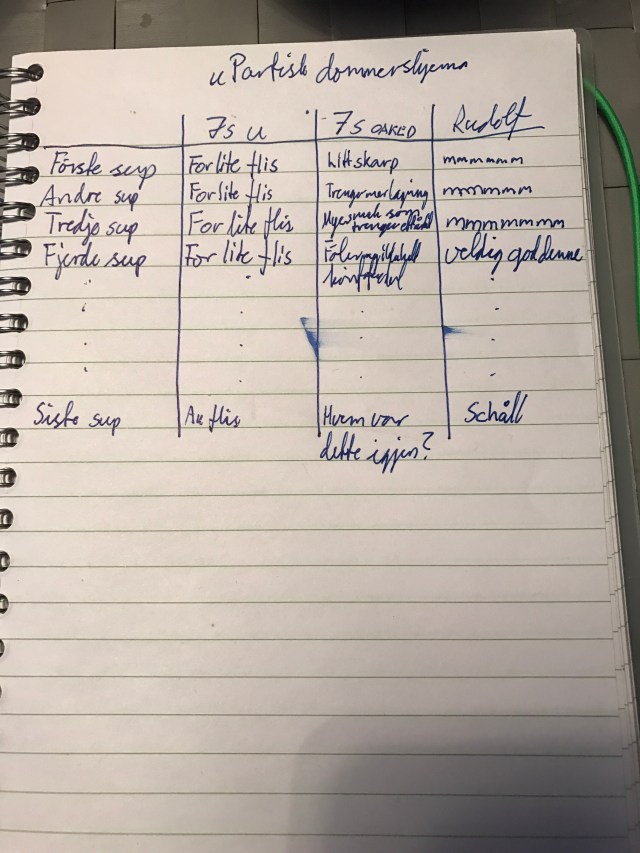 uPartisk dommerskjema
7s u 7s OAKED Rudolf
Første sup For lite flis Litt skarp mmmmmm
Andre sup For lite flis Trenger mer lagring mmmmmm
Tredje sup For lite flis Mye smak som mmmmmmm
trenger
Fjerde sup For lite flis Føler veldig god denne
Siste sup Au flis Hvem var Schåll
dette igjen?